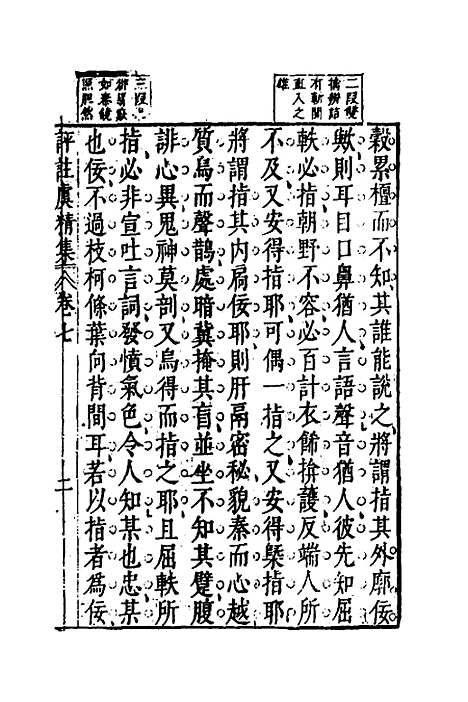 二段雙
擒辨詰
有斬關
直入之
雄
三段
如秦鏡
照胆然
穀累櫃而不知其誰能說之將謂指其外廓佞
歟則耳目口鼻猶人言語聲音猶人彼先知屈
軼必指朝野不容必百計衣飾揜護反端人所
不及又安得指耶可偶一指之又安得槩指耶
將謂指其内扃佞耶則肝鬲密秘貌秦而心越
質烏而聲鵲處暗冀掩其盲並坐不知其躄腹
誹心異鬼神莫剖又烏得而指之耶且屈軼所
指必非宣吐言詞發憤氣色令人知某也忠某
也佞不過枝柯條葉向背間耳若以指者為佞
評註虞精集 卷七 二